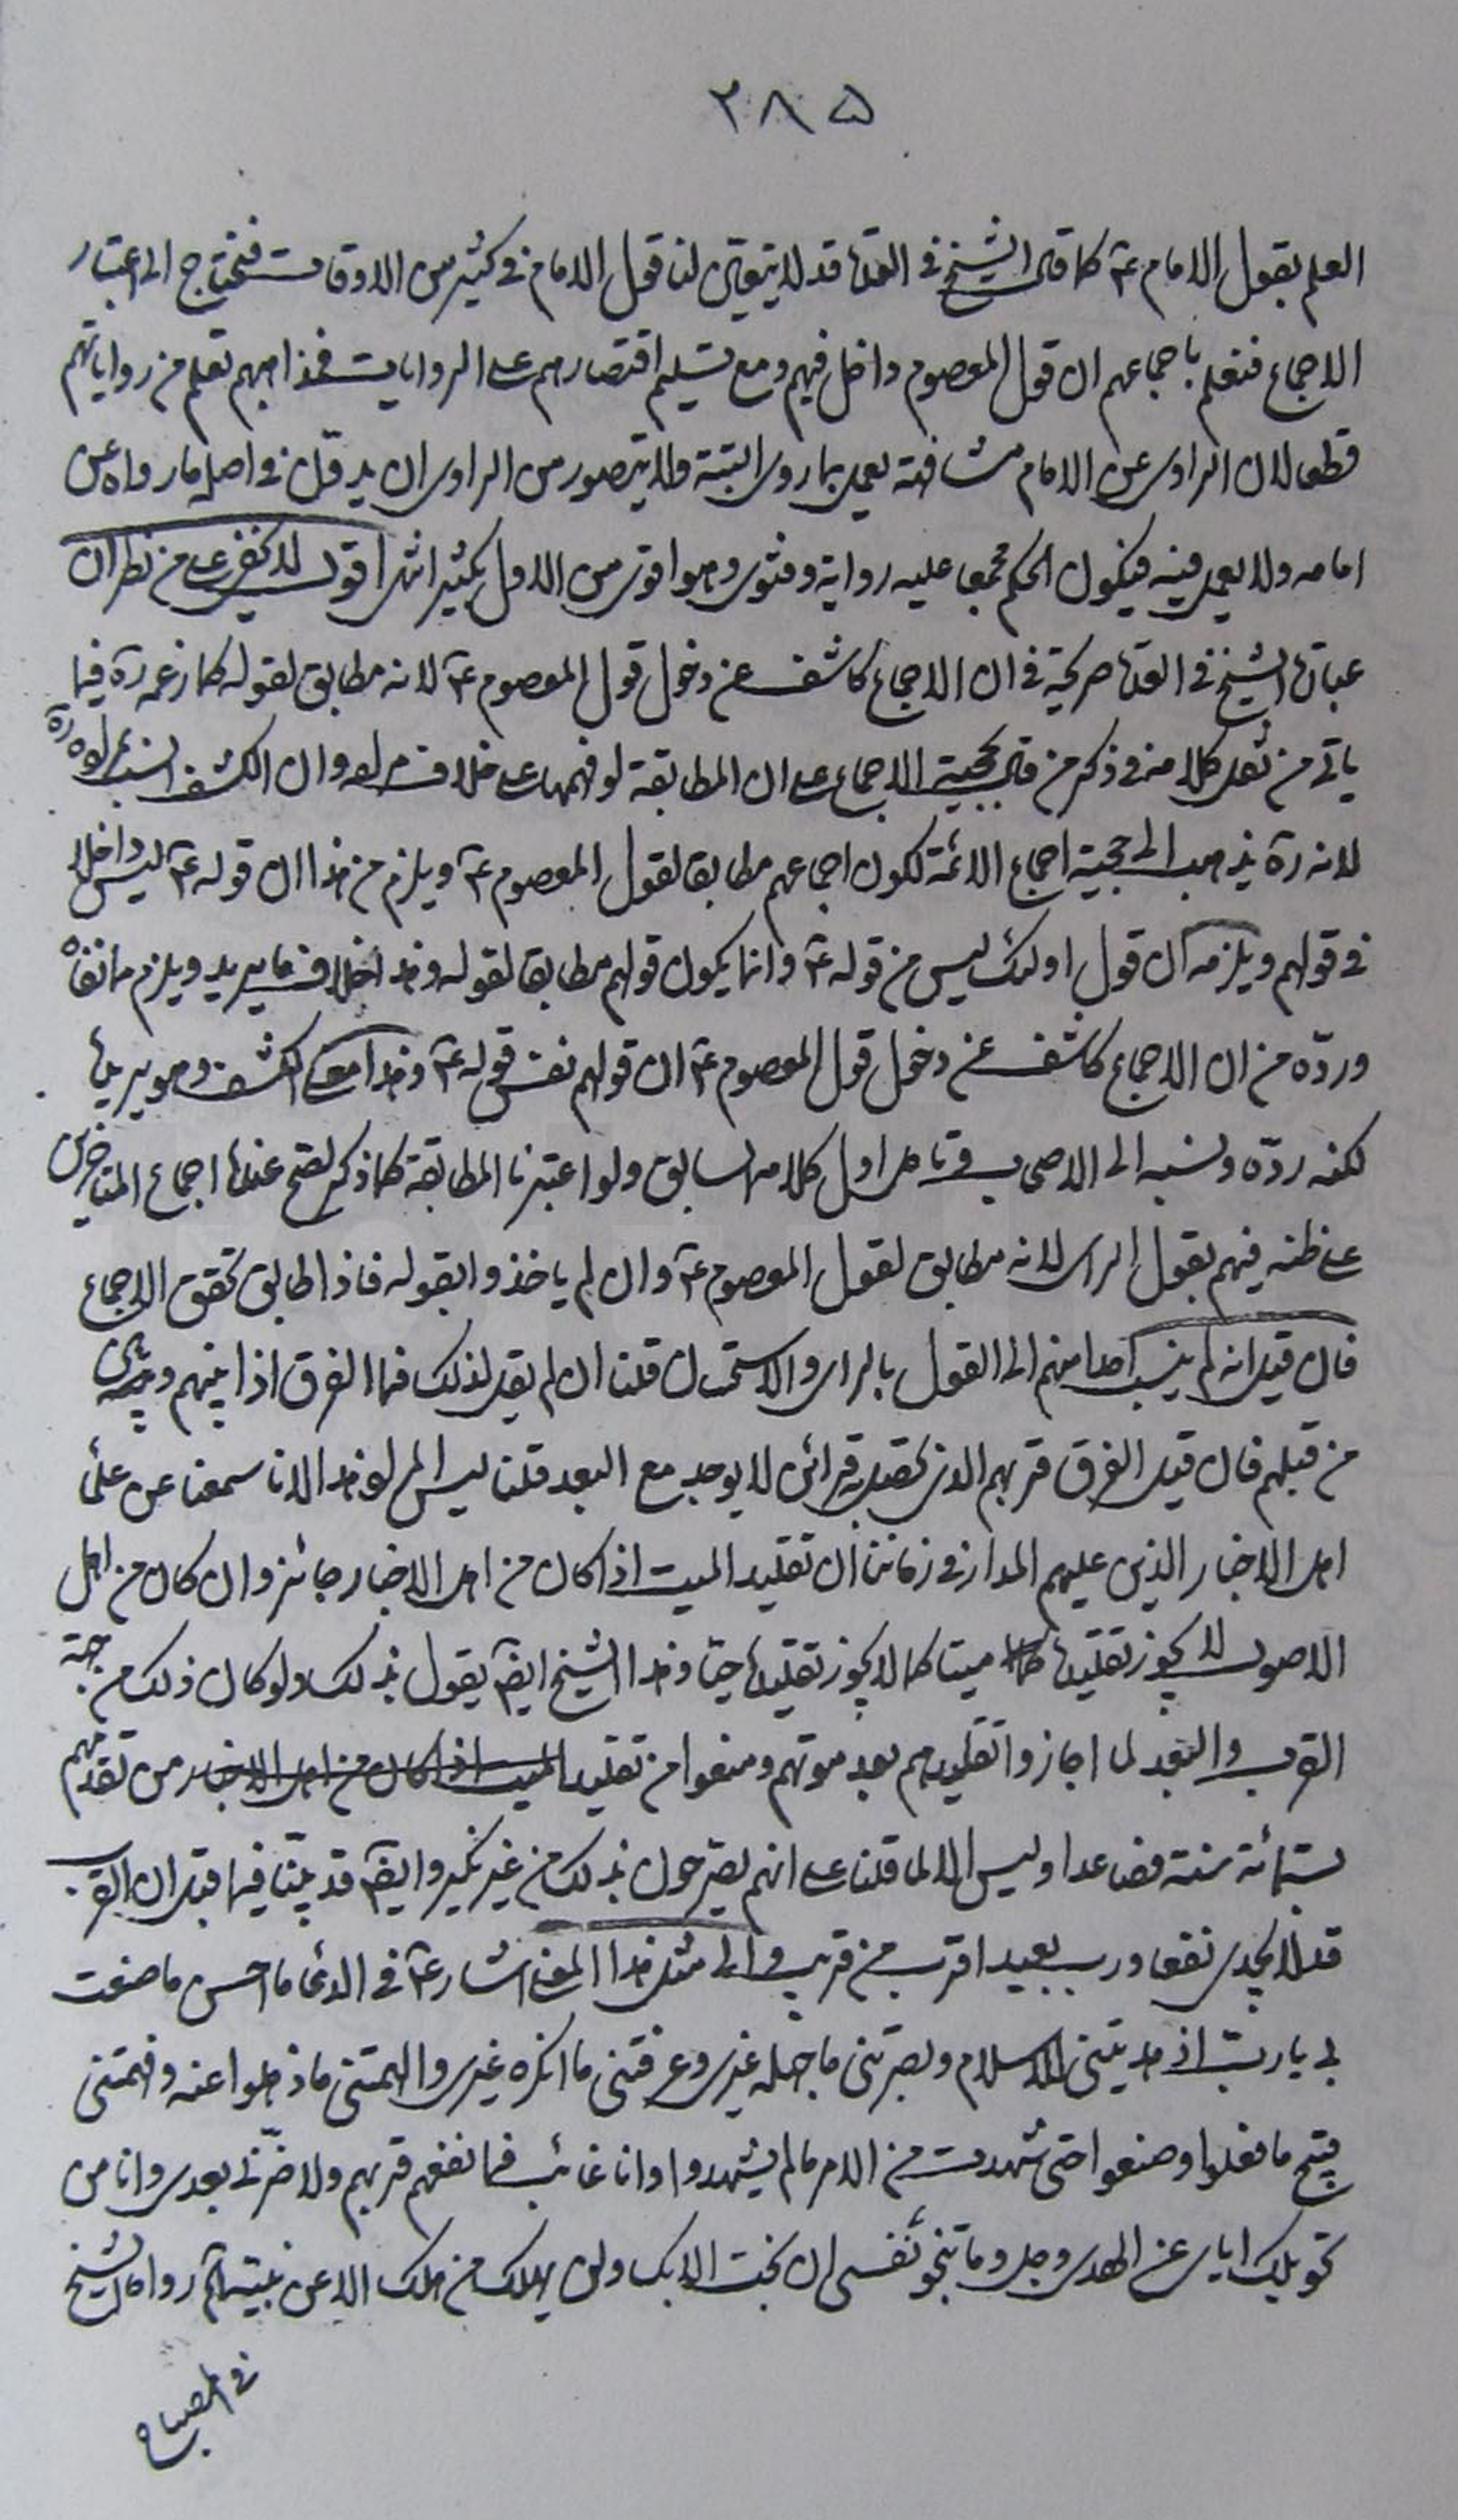 ٣٨٥
العلم بقول الامام عۤ كما قال الشيخ في العدة قد لا يتعين لنا قول الامام في كثير من الاوقات فنحتاج الى اعتبار
الاجماع فنعلم باجماعهم ان قول المعصوم داخل فيهم ومع تسليم اقتصارهم على الروايات فمذاهبهم تعلم من رواياتهم
قطعا لان الراوي عن الامام مشافهة يعمل بما روى البتة ولا يتصور من الراوي ان يدقّق في اصل ما رواه عن
امامه ولا يعمل فيه فيكون الحكم مجمعا عليه رواية وفتوى وهو اقوى من الاول بكثير انتهى اقول لا يخفى على من نظر ان
عبارة الشيخ في العدة صريحة في ان الاجماع كاشف عن دخول قول المعصوم عۤ لا انه مطابق لقوله كما زعمه رۤه فيما
ياتي من نقل كلامه في ذكر من قال بحجية الاجماع على ان المطابقة لو فهمها على خلاف مراده وان الكشف انسب بمراده رۤه
لانه رۤه يذهب الى حجية اجماع الائمة لكون اجماعهم مطابقا لقول المعصوم عۤ ويلزم من هذا ان قوله عۤ ليس داخلا
في قولهم ويلزمه ان قول اولئك ليس من قوله عۤ وانما يكون قولهم مطابقا لقوله وهذا خلاف ما يريد ويلزم ما نفاه
وردّه من ان الاجماع كاشف عن دخول قول المعصوم عۤ ان قولهم نفس قوله عۤ وهذا معنى الكشف وهو يريدها
لكنه ردّه ونسبه الى الاصحاب فتامل اول كلامه السابق ولو اعتبرنا المطابقة كما ذكر لصح عندنا اجماع المتاخرين
على ظنه فيهم بقول الراي لانه مطابق لقول المعصوم عۤ وان لم ياخذوا بقوله فاذا طابق تحقق الاجماع
فان قيل انه لم ينسب احدا منهم الى القول بالراي والاستحسان قلنا ان لم يقل لذلك فما الفرق اذا بينهم وبين
من قبلهم فان قيل الفرق قربهم الذي تحصل به قرائن لا يوجد مع البعد قلنا ليس المراد هذا لانا سمعنا عن علماء
اهل الاخبار الذين عليهم المدار في زماننا ان تقليد الميت اذا كان من اهل الاخبار جائز وان كان من اهل
الاصول لا يجوز تقليده ميتا كما لا يجوز تقليده حيا وهذا الشيخ ايضۤ يقول بذلك ولو كان ذلك من جهة
القرب والبعد لما اجازوا تقليدهم بعد موتهم ومنعوا من تقليد الميت اذا كان من اهل الاخبار من تقدمهم
بستمائة سنة فصاعدا وليس الا لما قلنا على انهم يصرحون بذلك من غير نكير وايضۤ قد بيّنا فيما قبل ان القرب
قد لا يجدي نفعا ورب بعيد اقرب من قريب والى مثل هذا المعنى اشار عۤ في الدعاء ما احسن ما صنعت
بي يا رب اذ هديتني للاسلام وبصرتني ما جهله غيري وعرفتني ما انكره غيري والهمتني ما ذهلوا عنه وفهمتني
قبيح ما فعلوا وصنعوا حتى شهدت من الامر ما لم يشهدوا وانا غائب فما نفعهم قربهم ولا ضرّني بعدي وانا من
تحويلك اياي عن الهدى وجل وما تنجو نفسي ان نجت الا بك ولن يهلك من هلك الا عن بينة آۤه رواه الشيخ
في المصباح